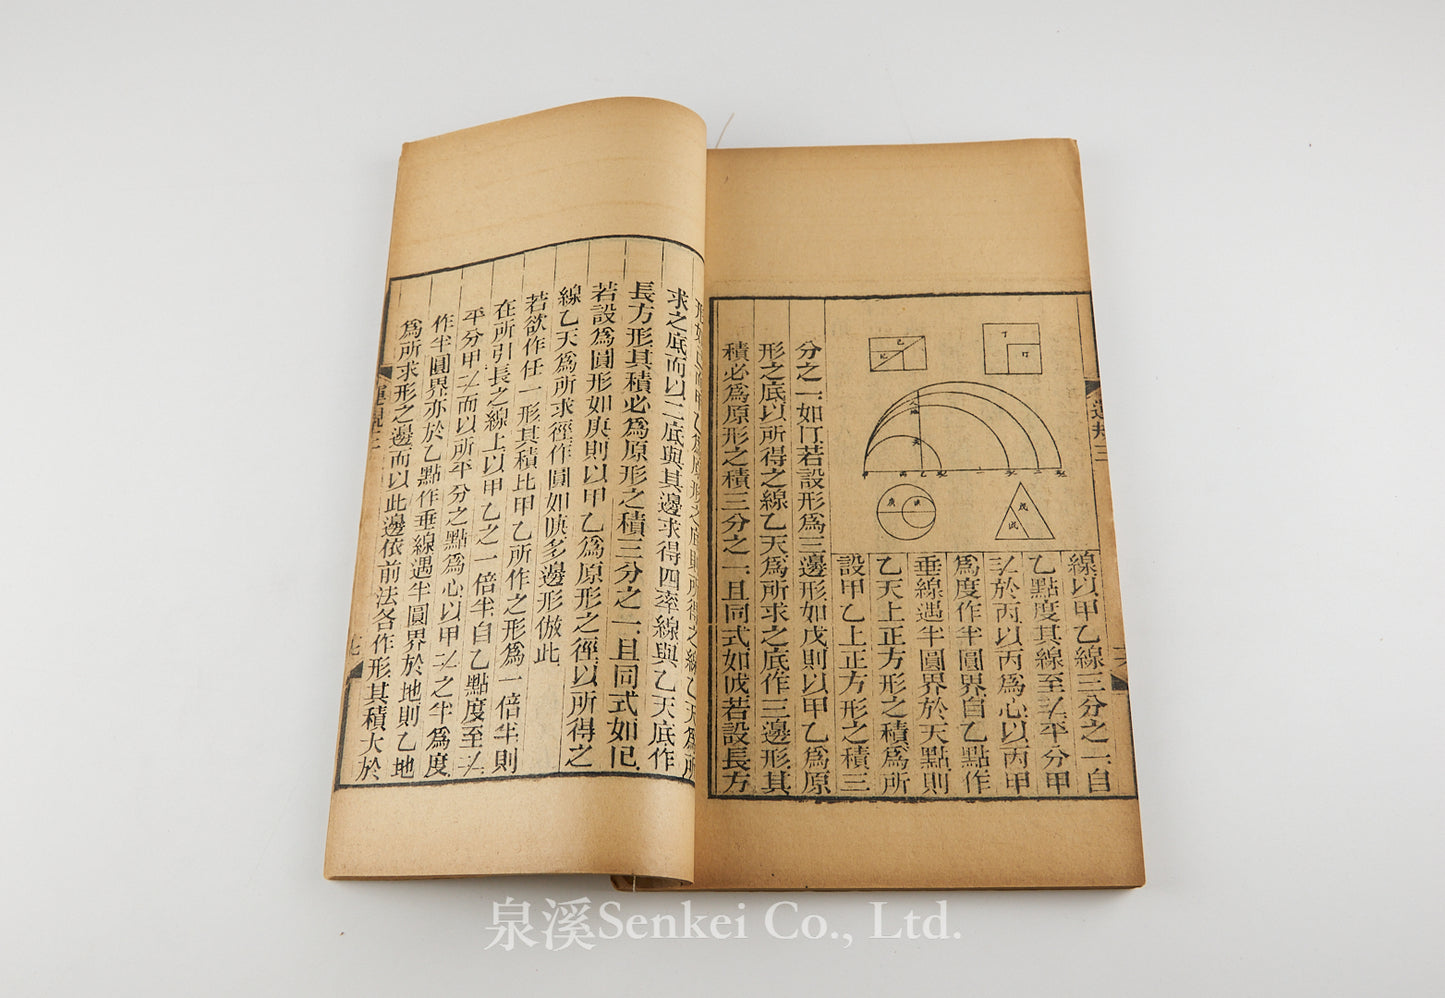 運規三
丁
己
天
甲
丙
乙
庚
線以甲乙線三分之一自
乙點度其線至平分甲
於丙以丙為心以丙甲
為度作半圓界自乙點作
垂線遇半圓界於天點則
乙天上正方形之積為所
設甲乙上正方形之積三
分之一如若設形為三邊形如戊則以甲乙為原
形之底以所得之線乙天為所求之底作三邊形其
積必為原形之積三分之一且同式如若設長方
乙為原形之底則所得之線乙天為所
求之底而以二底與其邊求得四率線與乙天底作
長方形其積必為原形之積三分之一且同式如
若設為圓形如庚則以甲乙為原形之徑以所得之
線乙天為所求徑作圓如多邊形倣此
若欲作任一形其積比甲乙所作之形為一倍半則
在所引長之線上以甲乙之一倍半自乙點度至
平分甲而以所平分之點為心以甲之半為度
作半圓界亦於乙點作垂線遇半圓界於地則乙地
為所求形之邊而以此邊依前法各作形其積大於
運規三
泉溪Senkei Co., Ltd.